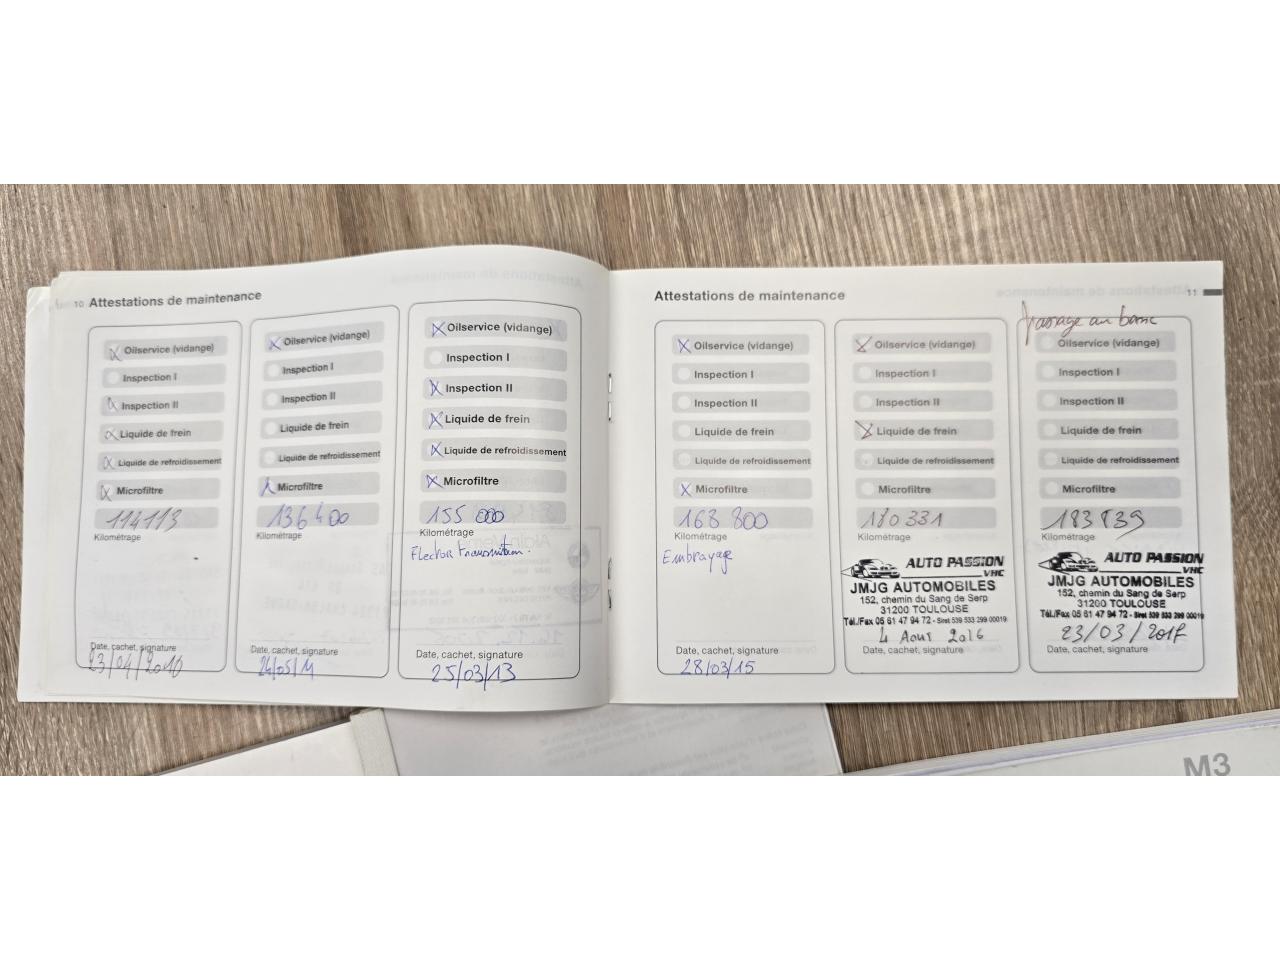 10 Attestations de maintenance
Oilservice (vidange)
Inspection I
Inspection II
Liquide de frein
Liquide de refroidissement
Microfiltre
114113
Kilométrage
Date, cachet, signature
23/04/2010
Oilservice (vidange)
Inspection I
Inspection II
Liquide de frein
Liquide de refroidissement
Microfiltre
136400
Kilométrage
Date, cachet, signature
24/05/11
Oilservice (vidange)
Inspection I
Inspection II
Liquide de frein
Liquide de refroidissement
Microfiltre
155 000
Kilométrage
Date, cachet, signature
25/03/13
Attestations de maintenance
11
Oilservice (vidange)
Inspection I
Inspection II
Liquide de frein
Liquide de refroidissement
Microfiltre
168 800
Kilométrage
Embrayage
Date, cachet, signature
28/03/15
Oilservice (vidange)
Inspection I
Inspection II
Liquide de frein
Liquide de refroidissement
Microfiltre
180 331
Kilométrage
AUTO PASSION
VHC
JMJG AUTOMOBILES
152, chemin du Sang de Serp
31200 TOULOUSE
Tél./Fax 05 61 47 94 72 - Siret 539 533 299 00019
4 Aout 2016
Date, cachet, signature
passage au banc
Oilservice (vidange)
Inspection I
Inspection II
Liquide de frein
Liquide de refroidissement
Microfiltre
183 839
Kilométrage
AUTO PASSION
VHC
JMJG AUTOMOBILES
152, chemin du Sang de Serp
31200 TOULOUSE
Tél./Fax 05 61 47 94 72 - Siret 539 533 299 00019
23/03/2017
Date, cachet, signature
M3